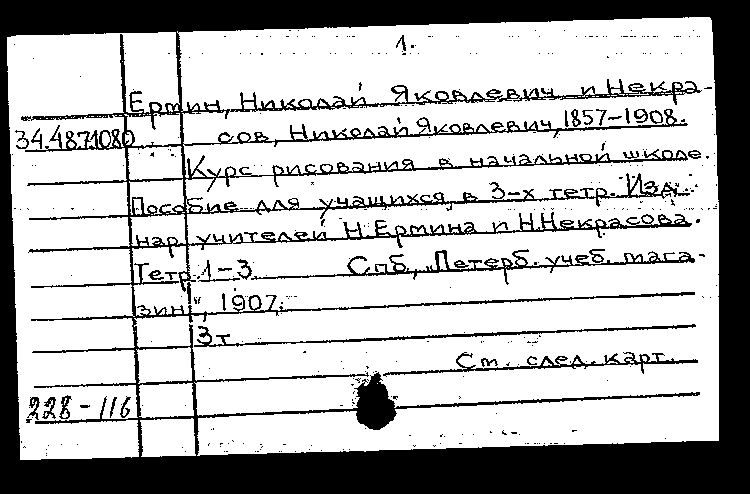 1.
Ермин, Николай Яковлевич и Некра-
34.48.71080 сов, Николай Яковлевич, 1857-1908.
Курс рисования в начальной школе.
Пособие для учащихся, в 3-х тетр. Изд.
нар. учителей Н.Ермина и Н.Некрасова.
Тетр. 1-3 Спб, „Петерб. учеб. мага-
зин", 1907.
3т
См. след. карт.
228-116